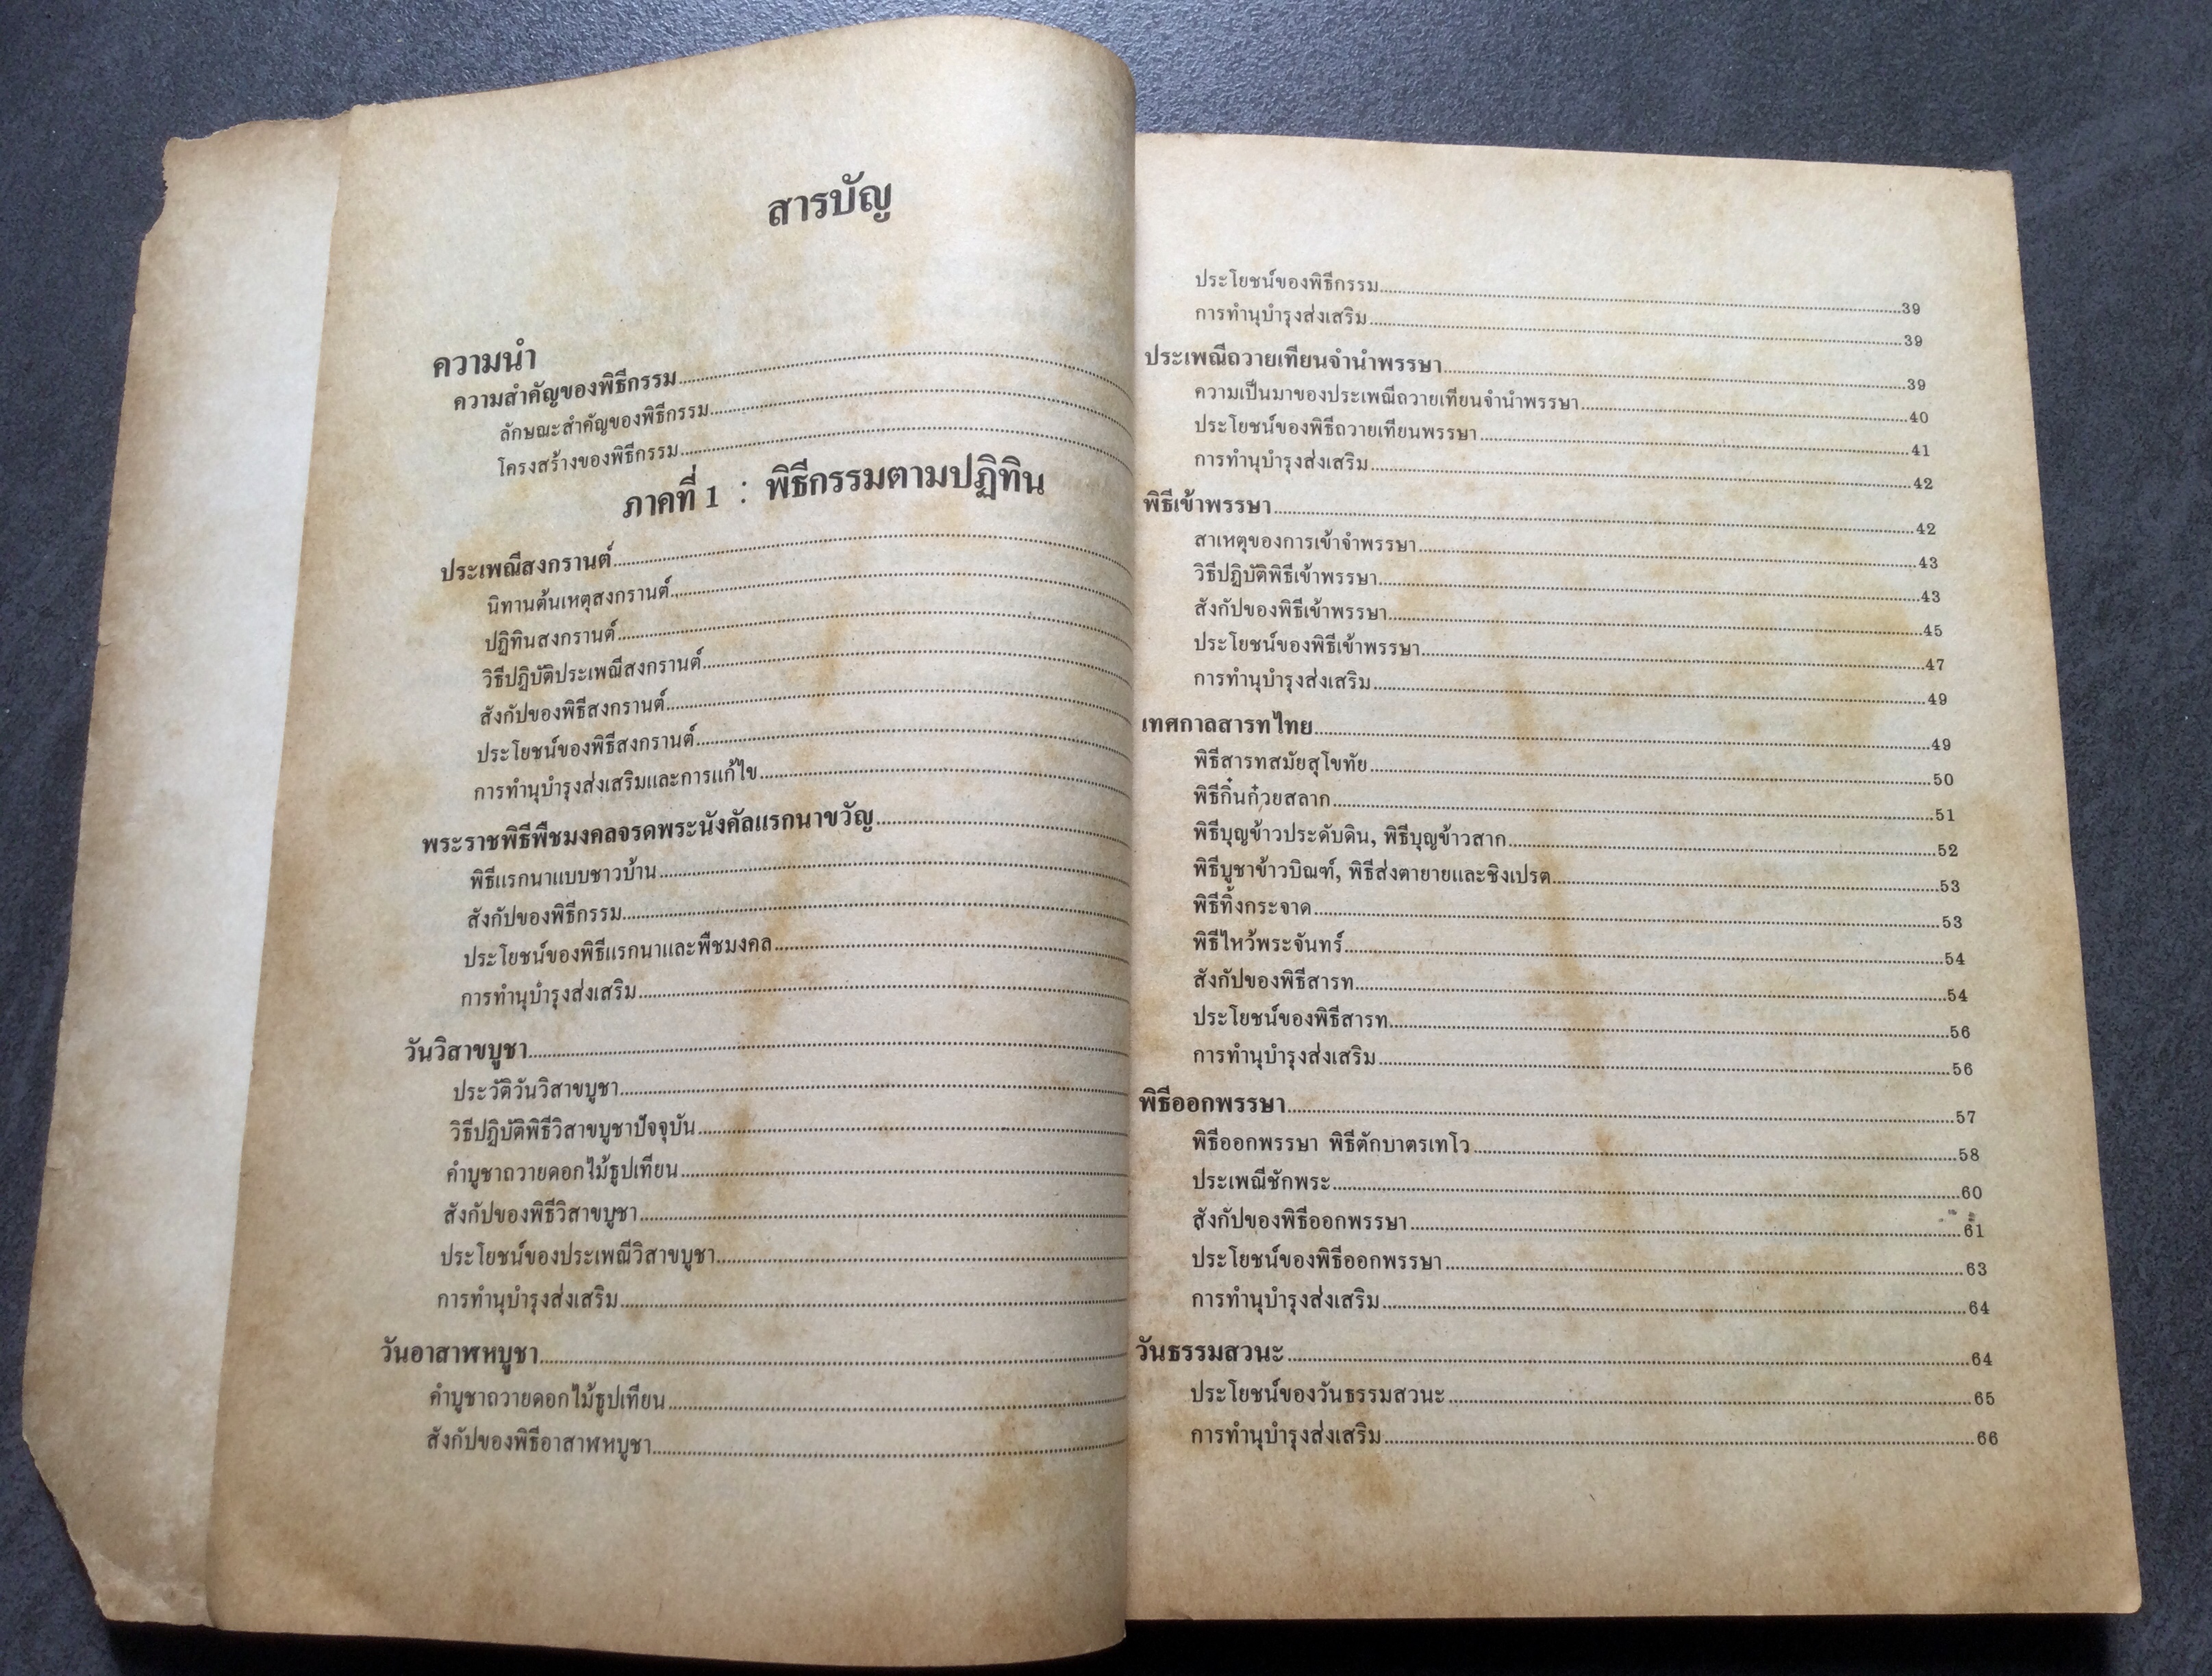 สารบัญ
ความนำ
ความสำคัญของพิธีกรรม
ลักษณะสำคัญของพิธีกรรม
โครงสร้างของพิธีกรรม
ภาคที่ 1 : พิธีกรรมตามปฏิทิน
ประเพณีสงกรานต์
นิทานต้นเหตุสงกรานต์
ปฏิทินสงกรานต์
วิธีปฏิบัติประเพณีสงกรานต์
สังกัปของพิธีสงกรานต์
ประโยชน์ของพิธีสงกรานต์
การทำนุบำรุงส่งเสริมและการแก้ไข
พระราชพิธีพืชมงคลจรดพระนังคัลแรกนาขวัญ
พิธีแรกนาแบบชาวบ้าน
สังกัปของพิธีกรรม
ประโยชน์ของพิธีแรกนาและพืชมงคล
การทำนุบำรุงส่งเสริม
วันวิสาขบูชา
ประวัติวันวิสาขบูชา
วิธีปฏิบัติพิธีวิสาขบูชาปัจจุบัน
คำบูชาถวายดอกไม้ธูปเทียน
สังกัปของพิธีวิสาขบูชา
ประโยชน์ของประเพณีวิสาขบูชา
การทำนุบำรุงส่งเสริม
วันอาสาฬหบูชา
คำบูชาถวายดอกไม้ธูปเทียน
สังกัปของพิธีอาสาฬหบูชา
ประโยชน์ของพิธีกรรม 39
การทำนุบำรุงส่งเสริม 39
ประเพณีถวายเทียนจำนำพรรษา 39
ความเป็นมาของประเพณีถวายเทียนจำนำพรรษา 40
ประโยชน์ของพิธีถวายเทียนพรรษา 41
การทำนุบำรุงส่งเสริม 42
พิธีเข้าพรรษา 42
สาเหตุของการเข้าจำพรรษา 43
วิธีปฏิบัติพิธีเข้าพรรษา 43
สังกัปของพิธีเข้าพรรษา 45
ประโยชน์ของพิธีเข้าพรรษา 47
การทำนุบำรุงส่งเสริม 49
เทศกาลสารทไทย 49
พิธีสารทสมัยสุโขทัย 50
พิธีกิ๋นก๋วยสลาก 51
พิธีบุญข้าวประดับดิน, พิธีบุญข้าวสาก 52
พิธีบูชาข้าวบิณฑ์, พิธีส่งตายายและชิงเปรต 53
พิธีทิ้งกระจาด 53
พิธีไหว้พระจันทร์ 54
สังกัปของพิธีสารท 54
ประโยชน์ของพิธีสารท 56
การทำนุบำรุงส่งเสริม 56
พิธีออกพรรษา 57
พิธีออกพรรษา พิธีตักบาตรเทโว 58
ประเพณีชักพระ 60
สังกัปของพิธีออกพรรษา 61
ประโยชน์ของพิธีออกพรรษา 63
การทำนุบำรุงส่งเสริม 64
วันธรรมสวนะ 64
ประโยชน์ของวันธรรมสวนะ 65
การทำนุบำรุงส่งเสริม 66